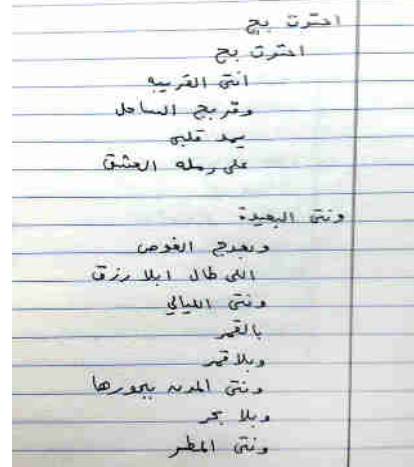 احترت بج
احترت بج
انتي القريبه
وقربج الساحل
يمد قلبي
على رمله العشق
ونتي البعيدة
وبعدج الغوص
اللي طال ابلا رزق
ونتي الليالي
بالقمر
وبلا قمر
ونتي المدن ببحورها
وبلا بحر
ونتي المطر